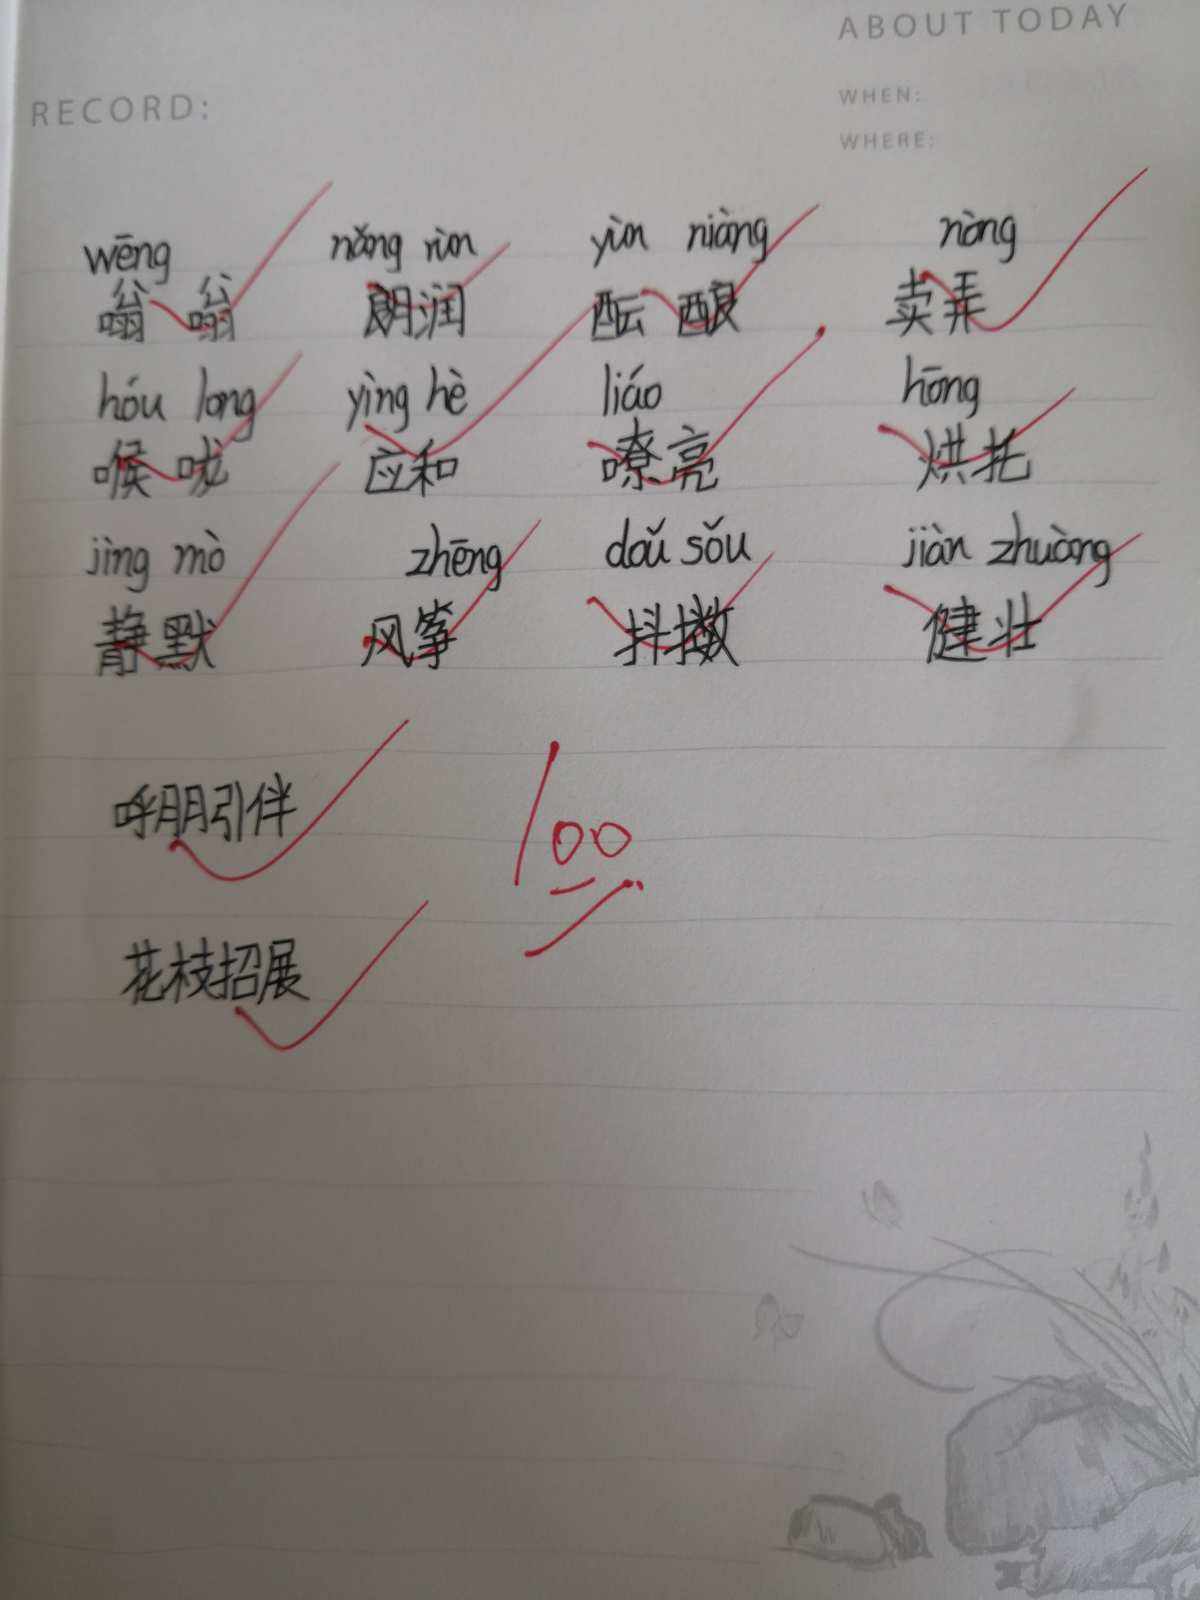 ABOUT TODAY
RECORD:
WHEN:
WHERE:
wēng nǎng rùn yùn niàng nòng
嗡嗡 朗润 酝酿 卖弄
hóu long yìng hè liáo hōng
喉咙 应和 嘹亮 烘托
jìng mò zhēng doǔ sǒu jiàn zhuàng
静默 风筝 抖擞 健壮
呼朋引伴
100
花枝招展